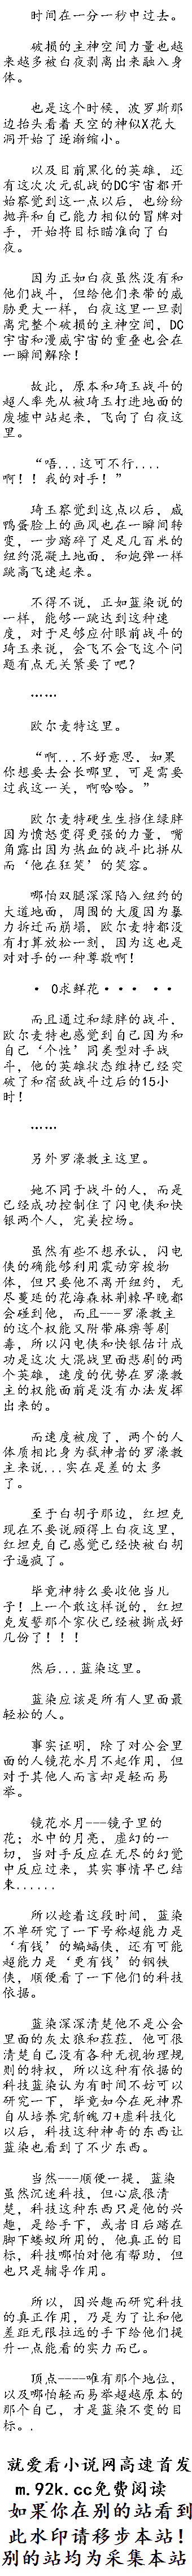 时间在一分一秒中过去。
破损的主神空间力量也越
来越多被白夜剥离出来融入身
体。
也是这个时候，波罗斯那
边抬头看着天空的神似X花大
洞开始了逐渐缩小。
以及目前黑化的英雄，还
有这次次元乱战的DC宇宙都开
始察觉到这一点以后，也纷纷
抛弃和自己能力相似的冒牌对
手，开始将目标瞄准向了白
夜。
因为正如白夜虽然没有和
他们战斗，但给他们来带的威
胁更大一样，白夜这里一旦剥
离完整个破损的主神空间，DC
宇宙和漫威宇宙的重叠也会在
一瞬间解除！
故此，原本和琦玉战斗的
超人率先从被琦玉打进地面的
废墟中站起来，飞向了白夜这
里。
“唔...这可不行....
啊！！我的对手！”
琦玉察觉到这点以后，咸
鸭蛋脸上的画风也在一瞬间转
变，一步踏碎了足足几百米的
纽约混凝土地面，和炮弹一样
跳高飞速起来。
不得不说，正如蓝染说的
一样，能够一跳达到这种速
度，对于足够应付眼前战斗的
琦玉来说，会飞不会飞这个问
题有点无关紧要了吧？
……
欧尔麦特这里。
“啊...不好意思，如果
你想要去会长哪里，可是需要
过我这一关，啊哈哈。”
欧尔麦特硬生生挡住绿胖
因为愤怒变得更强的力量，嘴
角露出因为热血的战斗比拼从
而‘他在狂笑’的笑容。
哪怕双腿深深陷入纽约的
大道地面，周围的大厦因为暴
力拆迁而崩塌，欧尔麦特都没
有打算放松一刻，因为这也是
对对手的一种尊敬啊！
· 0求鲜花··· ··
而且通过和绿胖的战斗，
欧尔麦特也感觉到自己因为和
自己‘个性’同类型对手战
斗，他的英雄状态维持已经突
破了和宿敌战斗过后的15小
时！
……
另外罗濠教主这里。
她不同于战斗的人，而是
已经成功控制住了闪电侠和快
银两个人，完美控场。
虽然有些不想承认，闪电
侠的确能够利用震动穿梭物
体，但只要他不离开纽约，无
尽蔓延的花海森林荆棘早晚都
会碰到他，而且---罗濠教主
的这个权能又附带麻痹等剧
毒，所以闪电侠和快银估计成
功是这次大混战里面悲剧的两
个英雄，速度的优势在罗濠教
主的权能面前是没有办法发挥
出来的。
而速度被废了，两个的人
体质相比身为弑神者的罗濠教
主来说...实在是差的太多
了。
至于白胡子那边，红坦克
现在不要说顾得上白夜这里，
红坦克自己感觉已经快被白胡
子逼疯了。
毕竟神特么要收他当儿
子！上一个敢这样说的，红坦
克发誓那个家伙已经被撕成好
几份了！！！
然后...蓝染这里。
蓝染应该是所有人里面最
轻松的人。
事实证明，除了对公会里
面的人镜花水月不起作用，但
对于其他人而言却是轻而易
举。
镜花水月---镜子里的
花；水中的月亮，虚幻的一
切，当对手反应在无尽的幻觉
中反应过来，其实事情早已结
束......
所以趁着这段时间，蓝染
不单研究了一下号称超能力是
‘有钱’的蝙蝠侠，还有可能
超能力是‘更有钱’的钢铁
侠，顺便看了一下他们的科技
依据。
蓝染深深清楚他不是公会
里面的灰太狼和菈菈，他可很
清楚自己没有各种无视物理规
则的特权，所以这种有依据的
科技蓝染认为有时间不妨可以
研究一下，毕竟如今在死神界
自从培养完斩魄刀+虚科技化
以后，科技这种神奇的东西让
蓝染也看到了不少东西。
当然---顺便一提，蓝染
虽然沉迷科技，但心底很清
楚，科技这种东西只是他的兴
趣，是给手下，或者日后踏在
脚下蝼蚁所用的，他真正的目
标，科技哪怕对他有帮助，但
也只是辅导作用。
所以，因兴趣而研究科技
的真正作用，乃是为了让和他
差距无限拉远的手下给他们提
升一点能看的实力而已。
顶点----唯有那个地位，
以及哪怕轻而易举超越原本的
那个自己，才是蓝染不变的目
标。.
就爱看小说网高速首发
m.92k.cc免费阅读
如果你在别的站看到
此水印请移步本站！
别的站均为采集本站